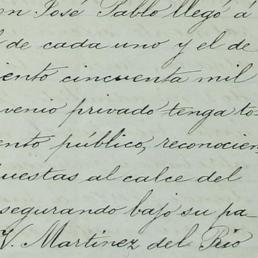 n José Pablo llegó á
l de cada uno y el de
iento cincuenta mil
venio privado tenga to-
ento público, reconocien
uestas al calce del
segurando bajo su pa-
V. Martinez del Rio